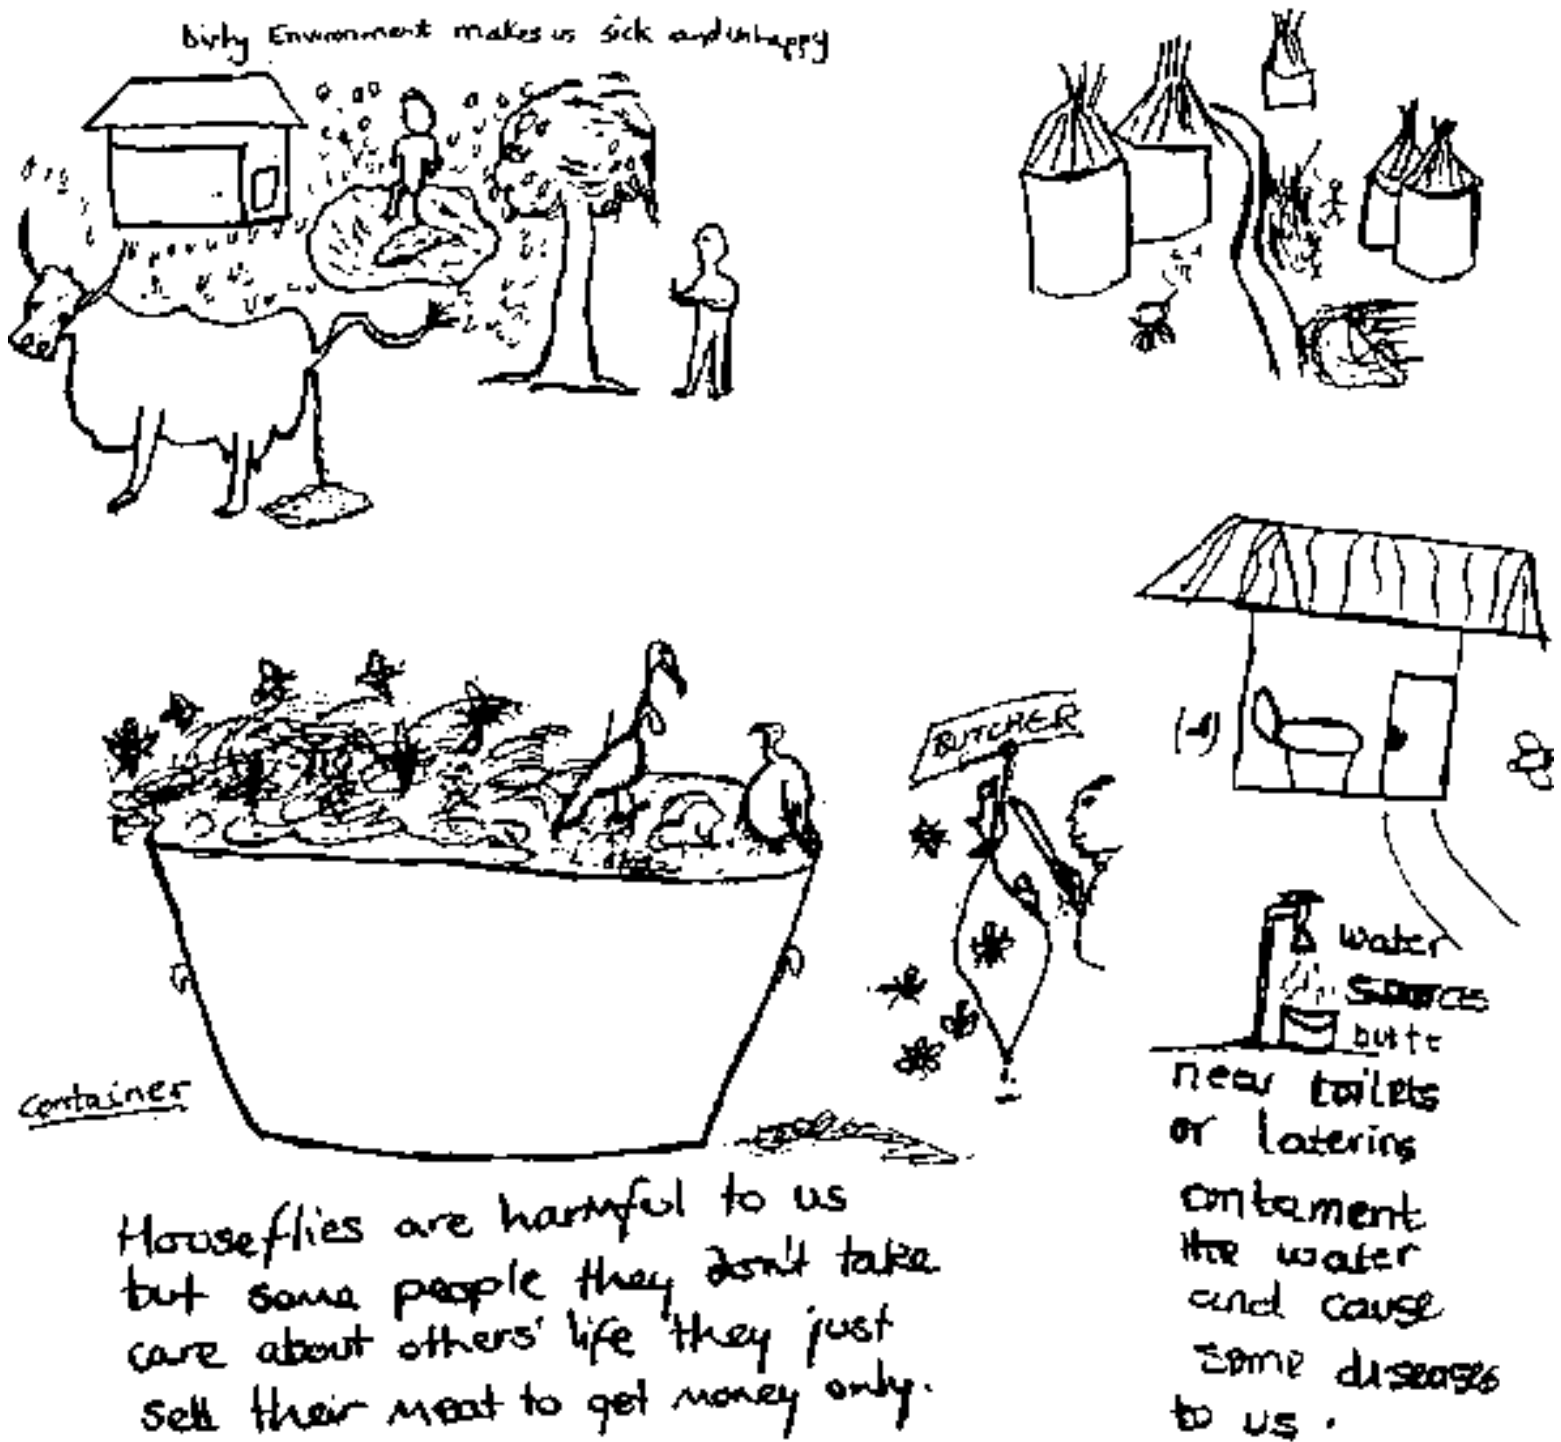 Dirty Environment makes us sick and unhappy
BUTCHER
(d)
container
Houseflies are harmful to us
but some people they don't take
care about others' life they just
sell their meat to get money only.
water
near toilets
or laterins
contament
the water
and cause
some diseases
to us.